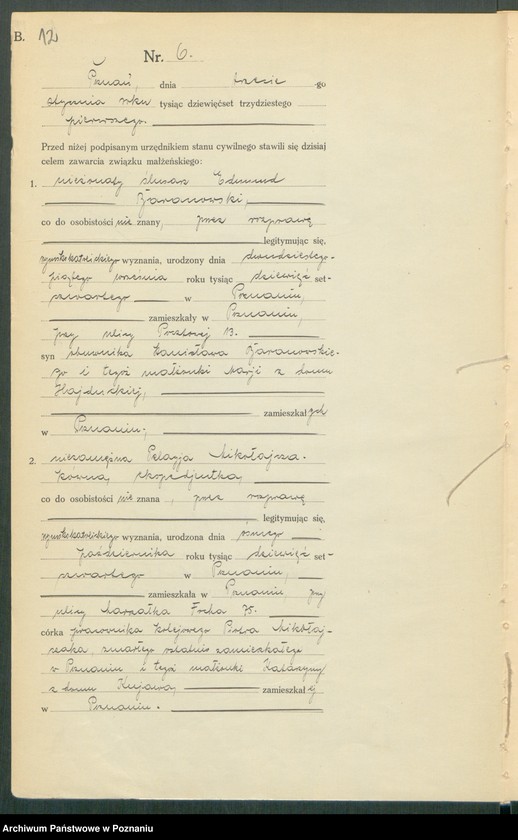 B. 12
Nr. 6.
Poznań, dnia trzecie -go
stycznia roku tysiąc dziewięćset trzydziestego
pierwszego.
Przed niżej podpisanym urzędnikiem stanu cywilnego stawili się dzisiaj
celem zawarcia związku małżeńskiego:
1. nieżonaty ślusarz Edmund
Baranowski,
co do osobistości nie znany, przez rozprawę
legitymując się,
rzymskokatolickiego wyznania, urodzony dnia dwudziestego-
piątego września roku tysiąc dziewięć set-
czwartego w Poznaniu,
zamieszkały w Poznaniu,
przy ulicy Pocztowej 13.
syn Stanisława Baranowskie-
go i tegoż małżonki Marji z domu
Hajduckiej,
zamieszkałych
w Poznaniu;
2. niezamężna Pelagja Mikołajcza-
kówna, ekspedjentka,
co do osobistości nie znana, przez rozprawę
legitymując się,
rzymskokatolickiego wyznania, urodzona dnia ósmego
października roku tysiąc dziewięć set-
czwartego w Poznaniu,
zamieszkała w Poznaniu przy
ulicy Marszałka Focha 75.
córka pracownika kolejowego Piotra Mikołaj-
czaka, zmarłego ostatnio zamieszkałego
w Poznaniu i tegoż małżonki Katarzyny
z domu Kujawa, zamieszkałej
w Poznaniu.
Archiwum Państwowe w Poznaniu